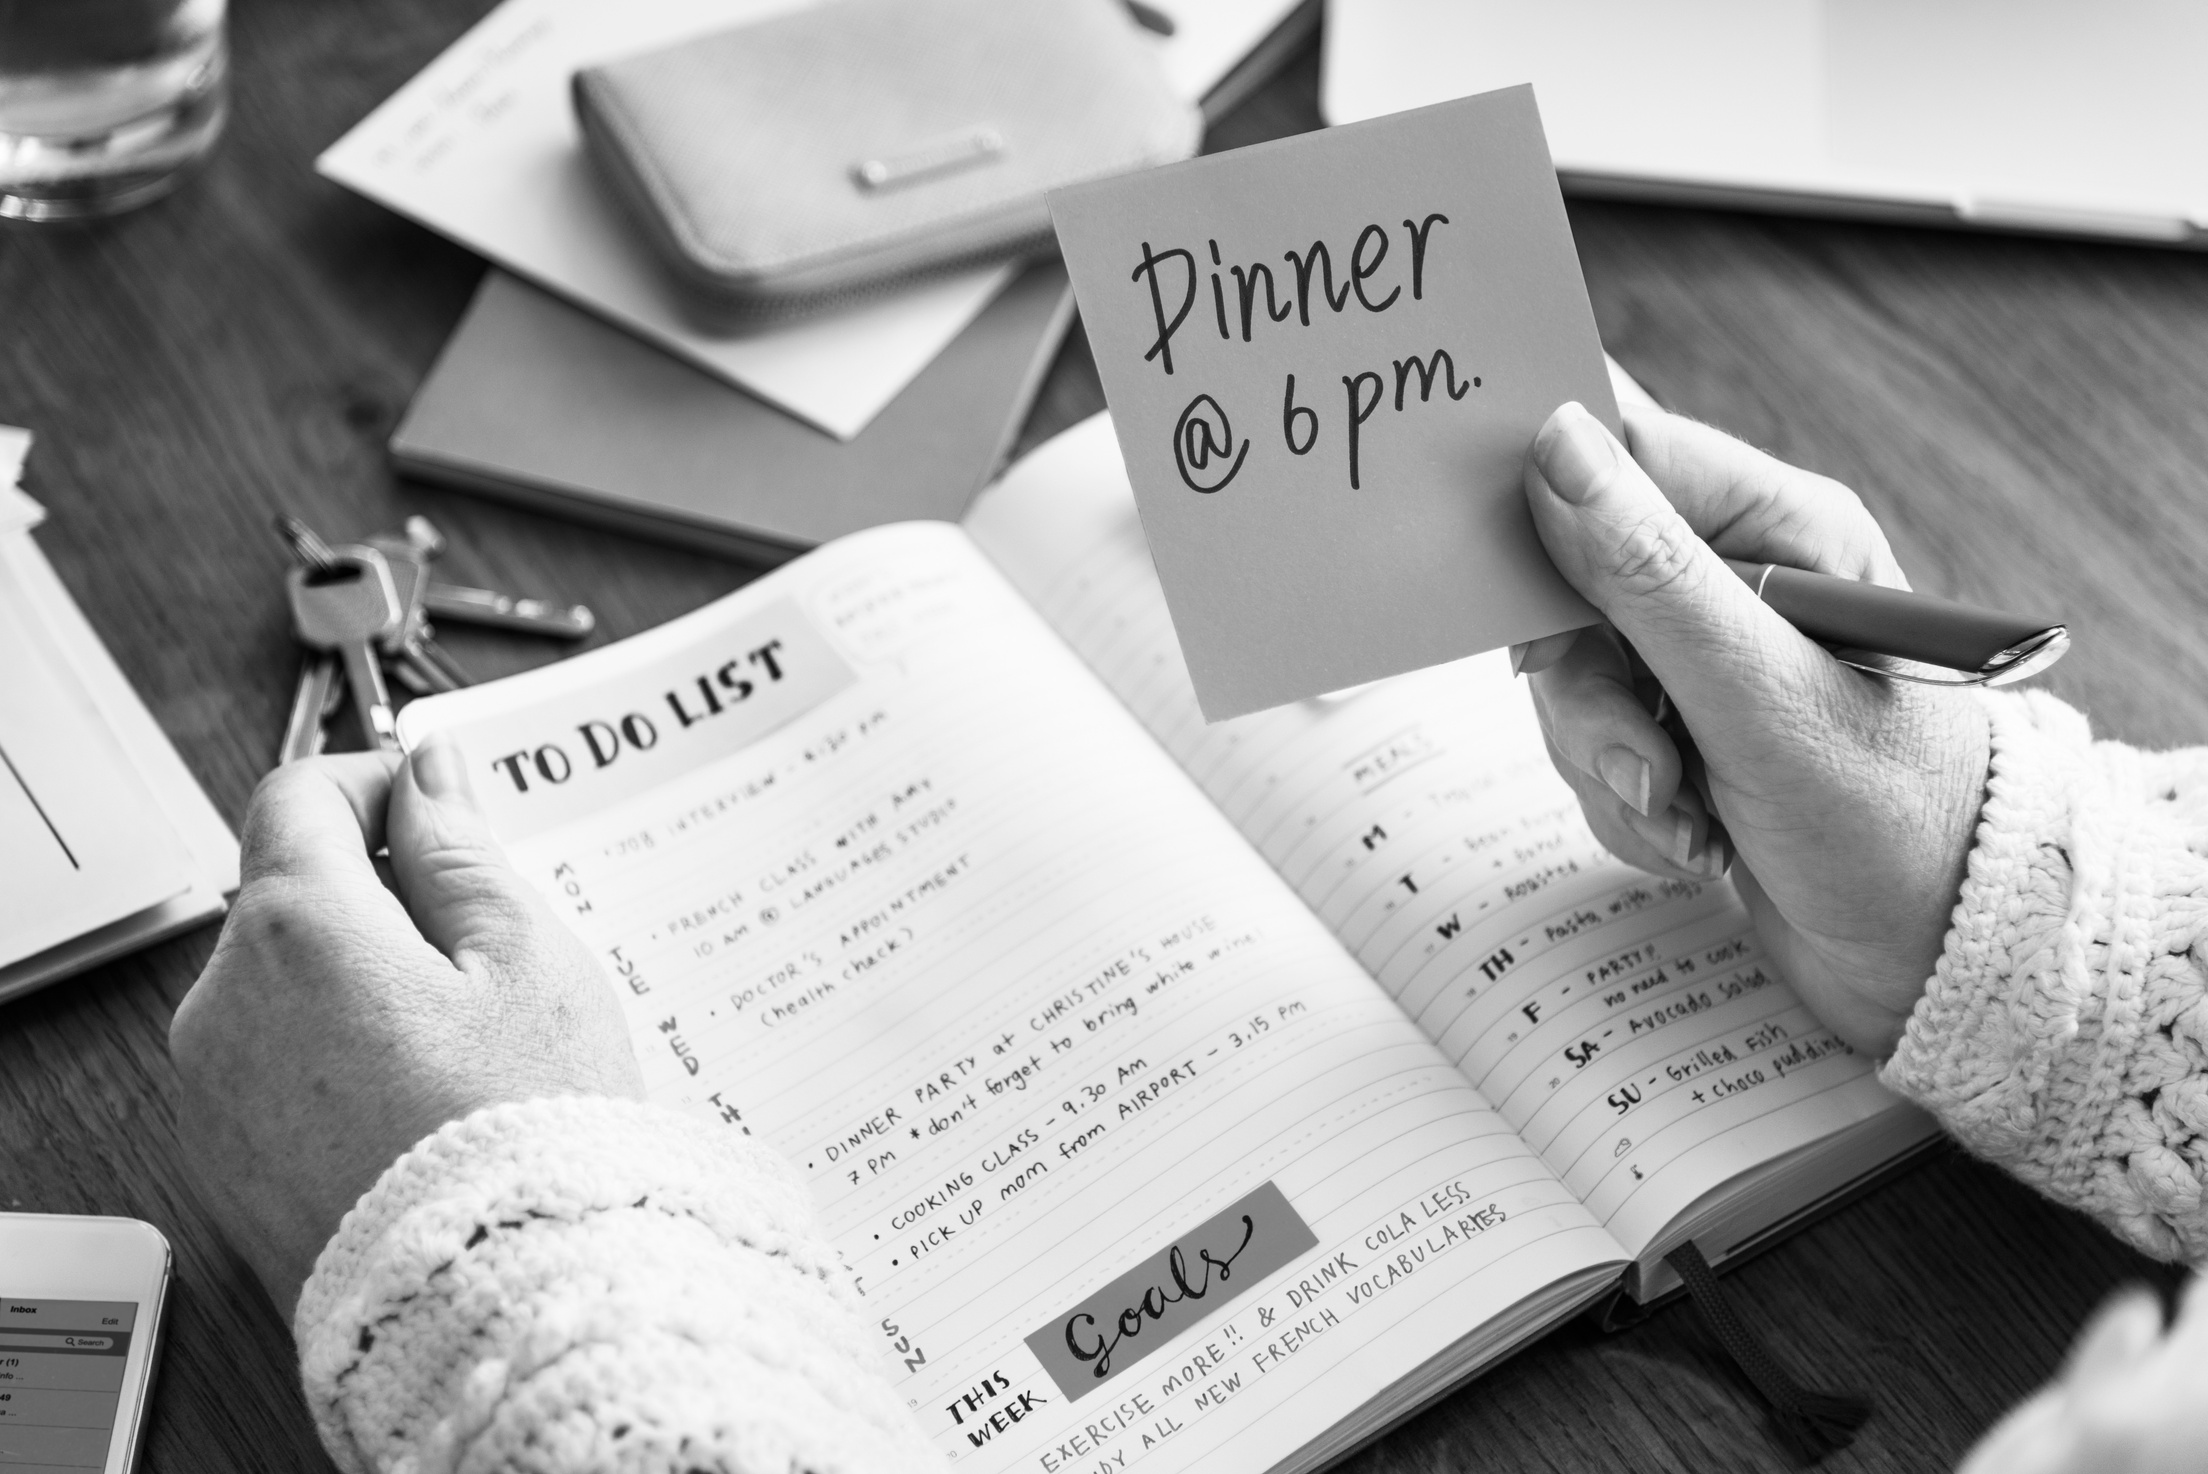 Dinner
@ 6 pm.
TO DO LIST
MON
• JOB INTERVIEW - 4.30 pm
TUE
• FRENCH CLASS WITH AMY
10 AM @ LANGUAGES STUDIO
WED
• DOCTOR'S APPOINTMENT
(health check)
TH.
• DINNER PARTY at CHRISTINE'S HOUSE
7 PM * don't forget to bring white wine!
• COOKING CLASS - 9.30 Am
• PICK UP mom from AIRPORT - 3.15 pm
SUN
THIS
WEEK
Goals
EXERCISE MORE!! & DRINK COLA LESS
ALL NEW FRENCH VOCABULARIES
MEALS
M -
T - Bean
+ baked
W - Roasted
TH - Pasta with vegs
F - PARTY!
no need to cook
SA - Avocado salad
SU - Grilled Fish
+ choco pudding
Inbox
Edit
Search
(1)
49